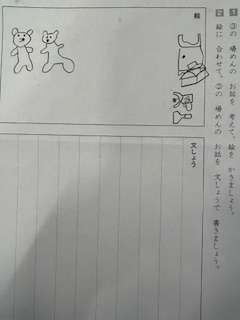 1 ③の 場めんの お話を 考えて、絵を かきましょう。
2 絵に 合わせて、③の 場めんの お話を 文しょうで 書きましょう。
絵
文しょう